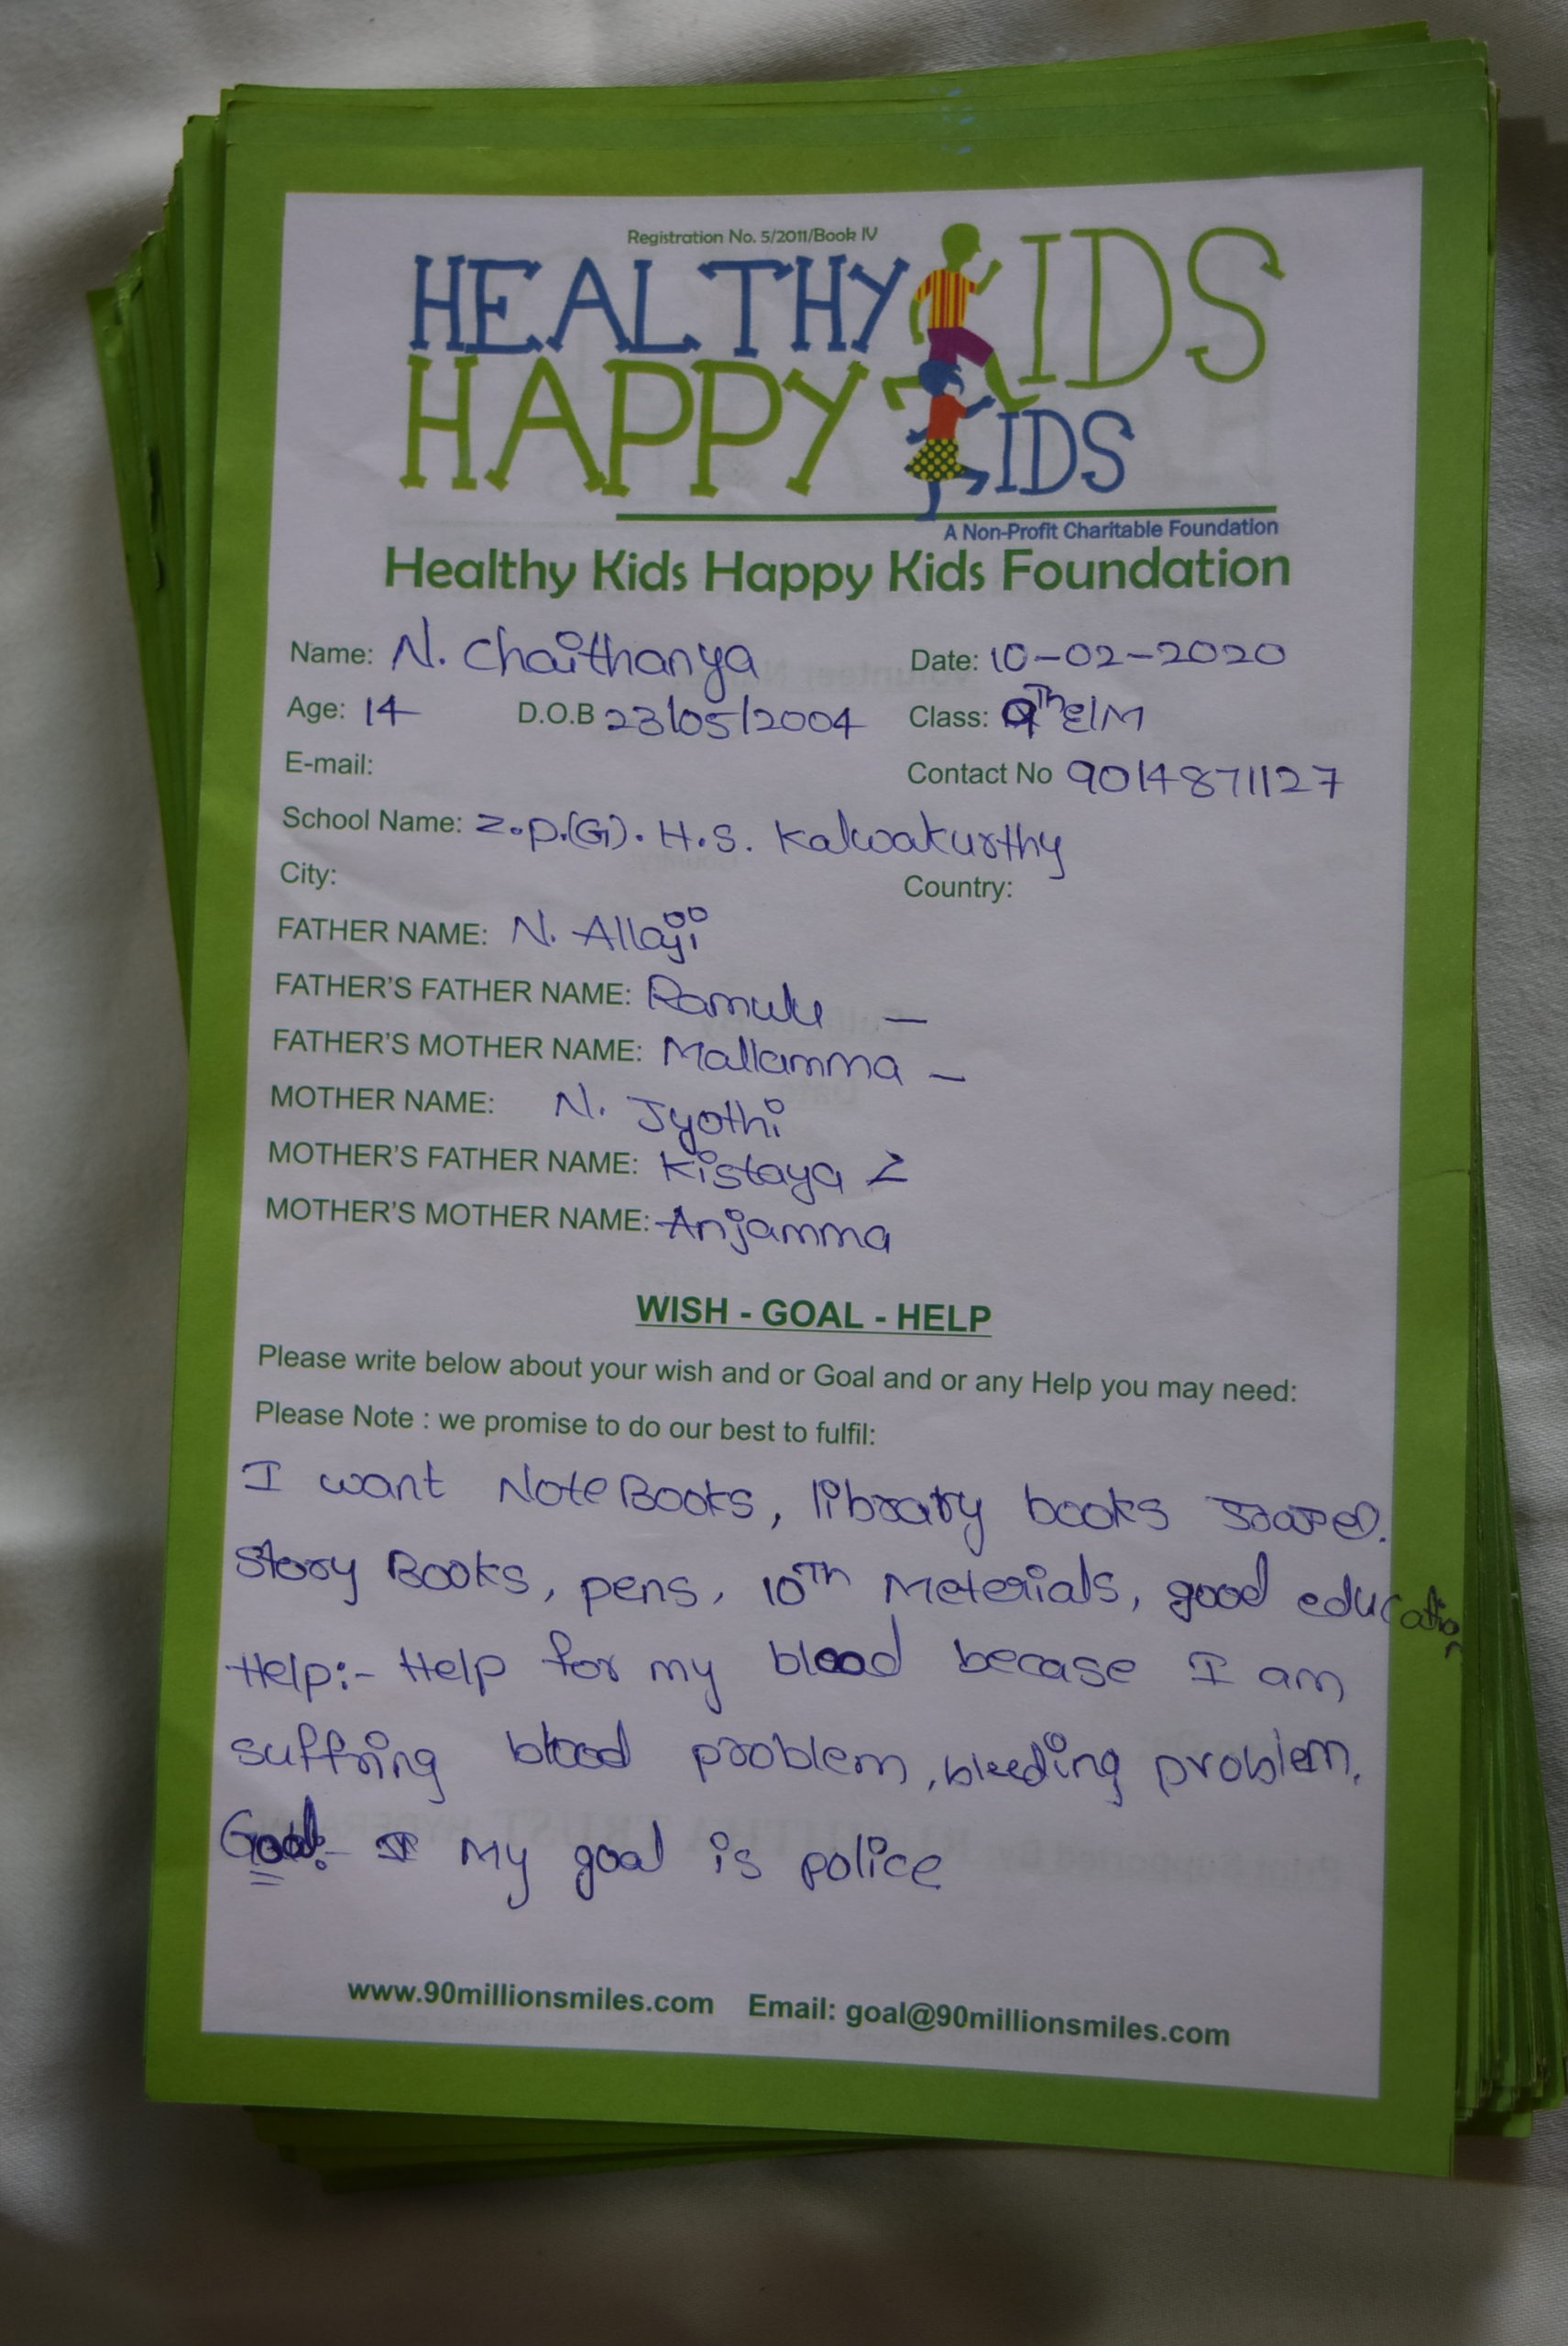 Registration No. 5/2011/Book IV
HEALTHY KIDS
HAPPY KIDS
A Non-Profit Charitable Foundation
Healthy Kids Happy Kids Foundation
Name: N. Chaithanya Date: 10-02-2020
Age: 14 D.O.B 23/05/2004 Class: 9Th E/M
E-mail: Contact No 9014871127
School Name: Z.P.(G). H.S. Kalwakurthy
City: Country:
FATHER NAME: N. Allaji
FATHER'S FATHER NAME: Ramulu -
FATHER'S MOTHER NAME: Mallamma -
MOTHER NAME: N. Jyothi
MOTHER'S FATHER NAME: Kistaya
MOTHER'S MOTHER NAME: Anjamma
WISH - GOAL - HELP
Please write below about your wish and or Goal and or any Help you may need:
Please Note : we promise to do our best to fulfil:
I want NoteBooks, library books
Story Books, pens, 10Th Meterials, good education
Help:- Help for my blood becase I am
suffring blood problem, bleeding problem.
Goal:- My goal is police
www.90millionsmiles.com Email: goal@90millionsmiles.com